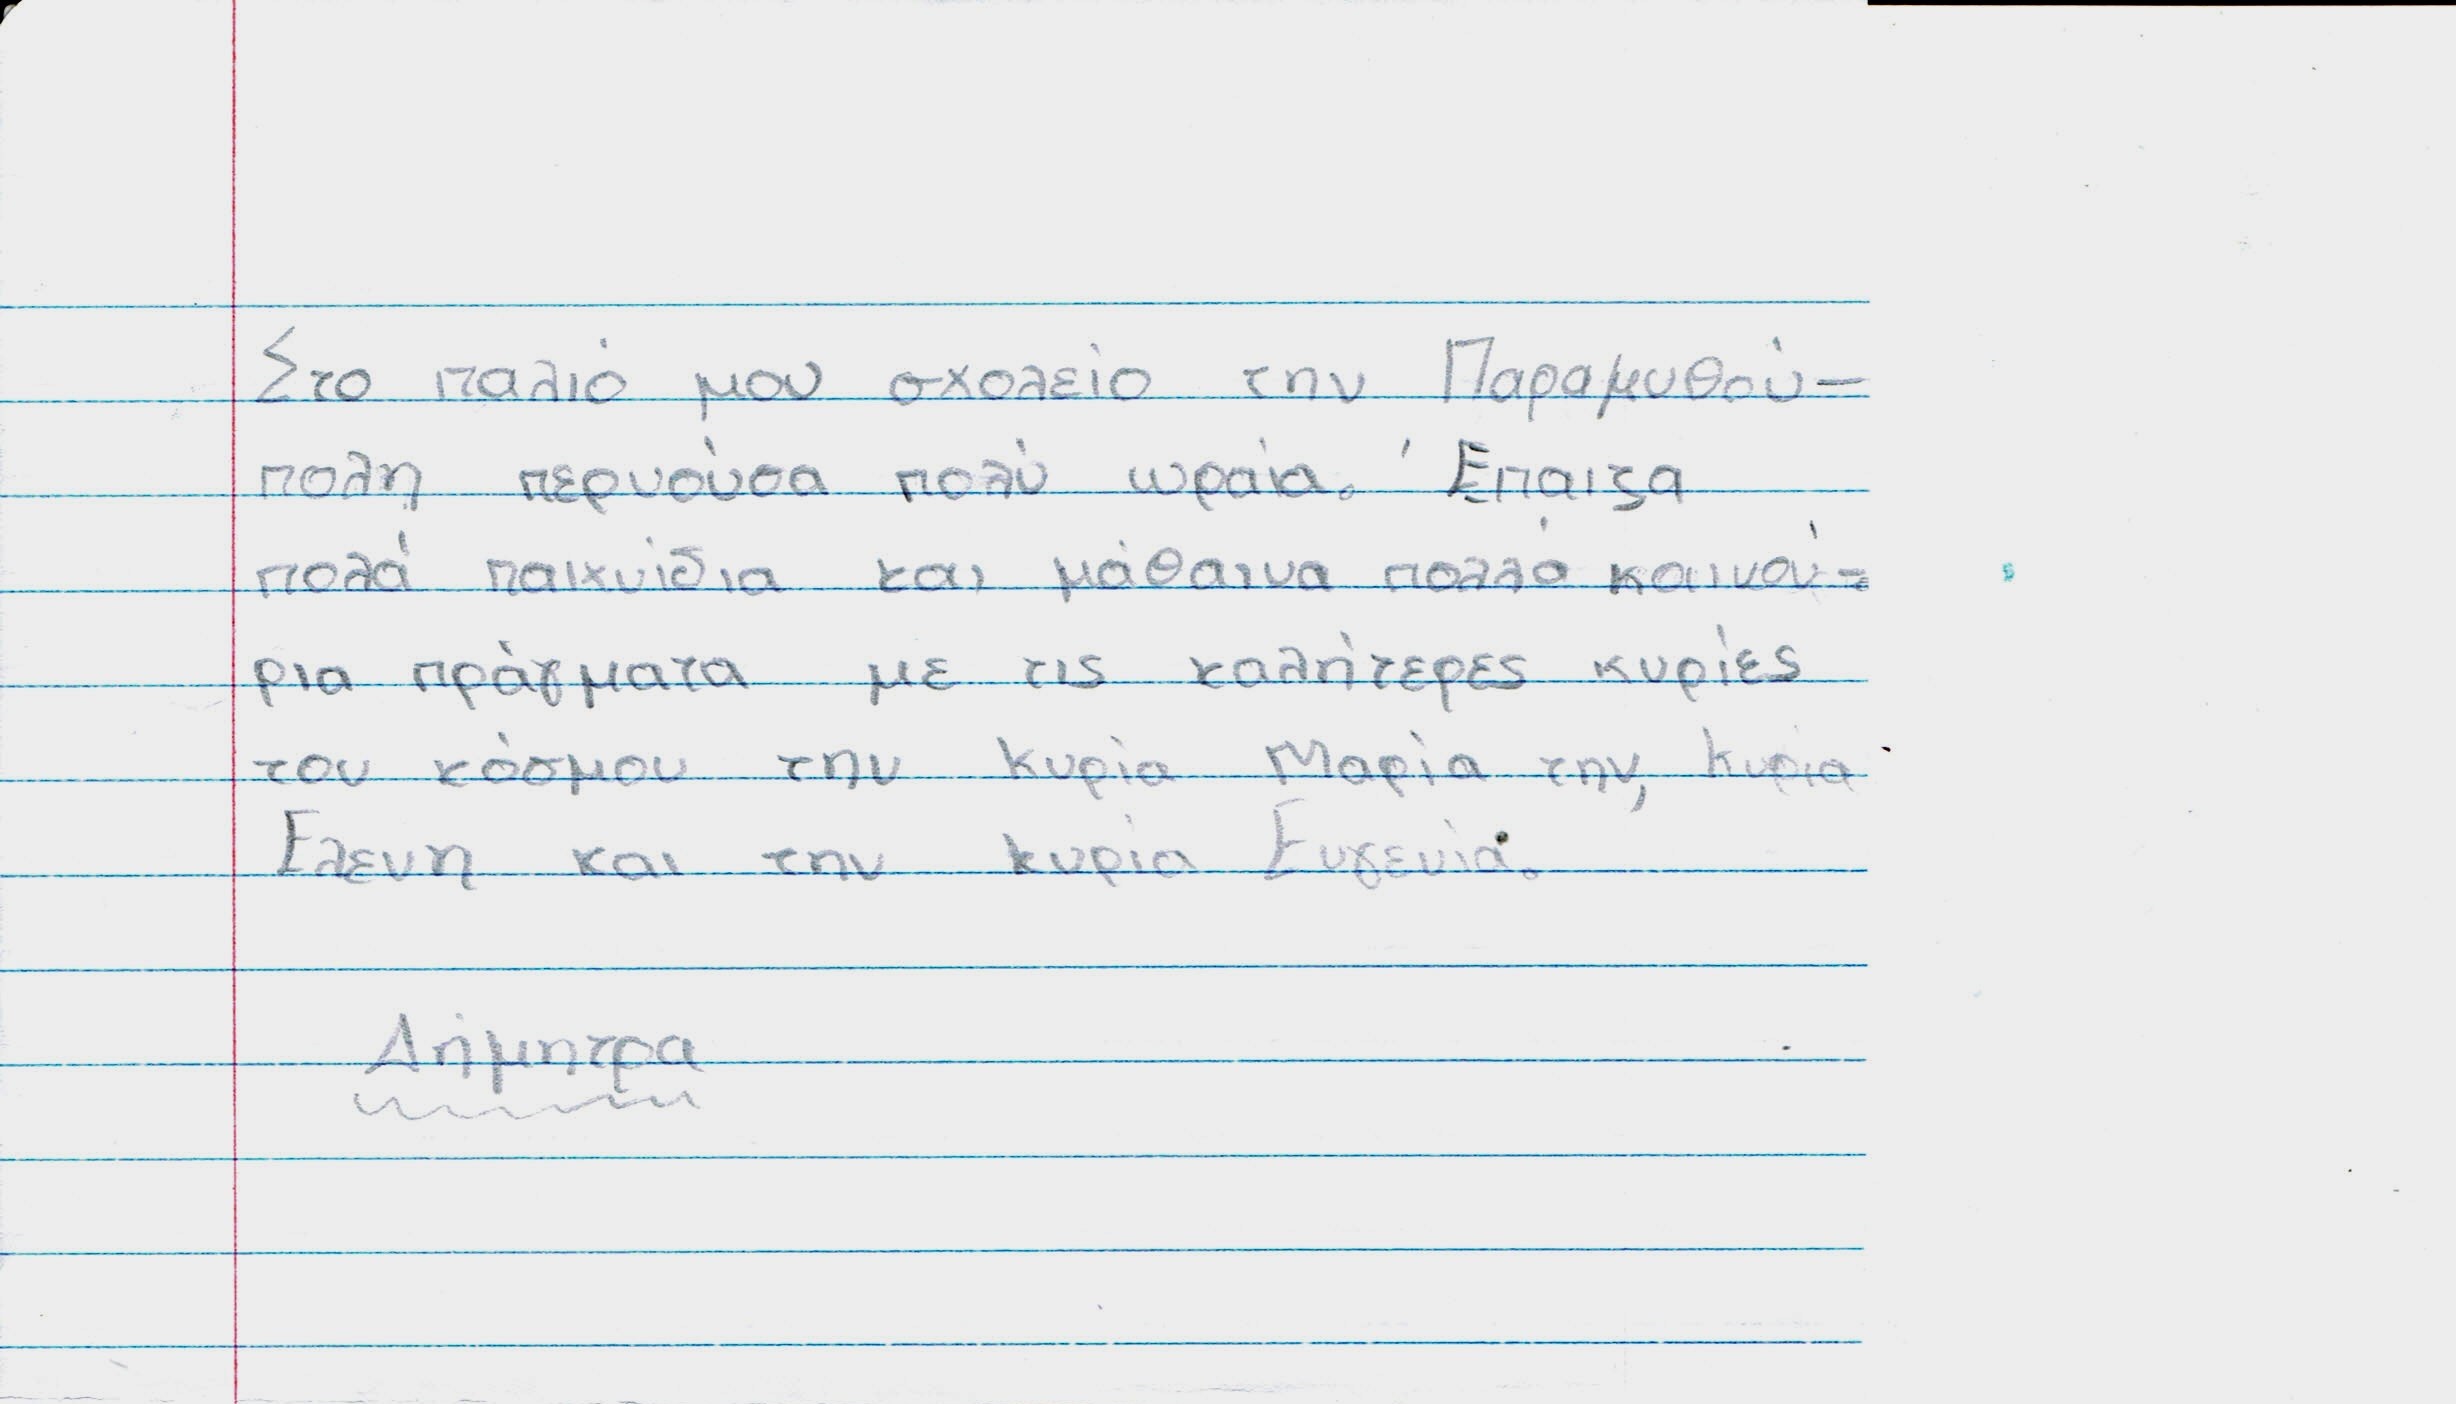 Στο παλιό μου σχολείο την Παραμυθού-
πολη περνούσα πολύ ωραία. Έπαιζα
πολά παιχνίδια και μάθαινα πολλά καινού-
ρια πράγματα με τις καλήτερες κυρίες
του κόσμου την κυρία Μαρία την, κυρία
Ελενη και την κυρία Ευγενία.
Δήμητρα